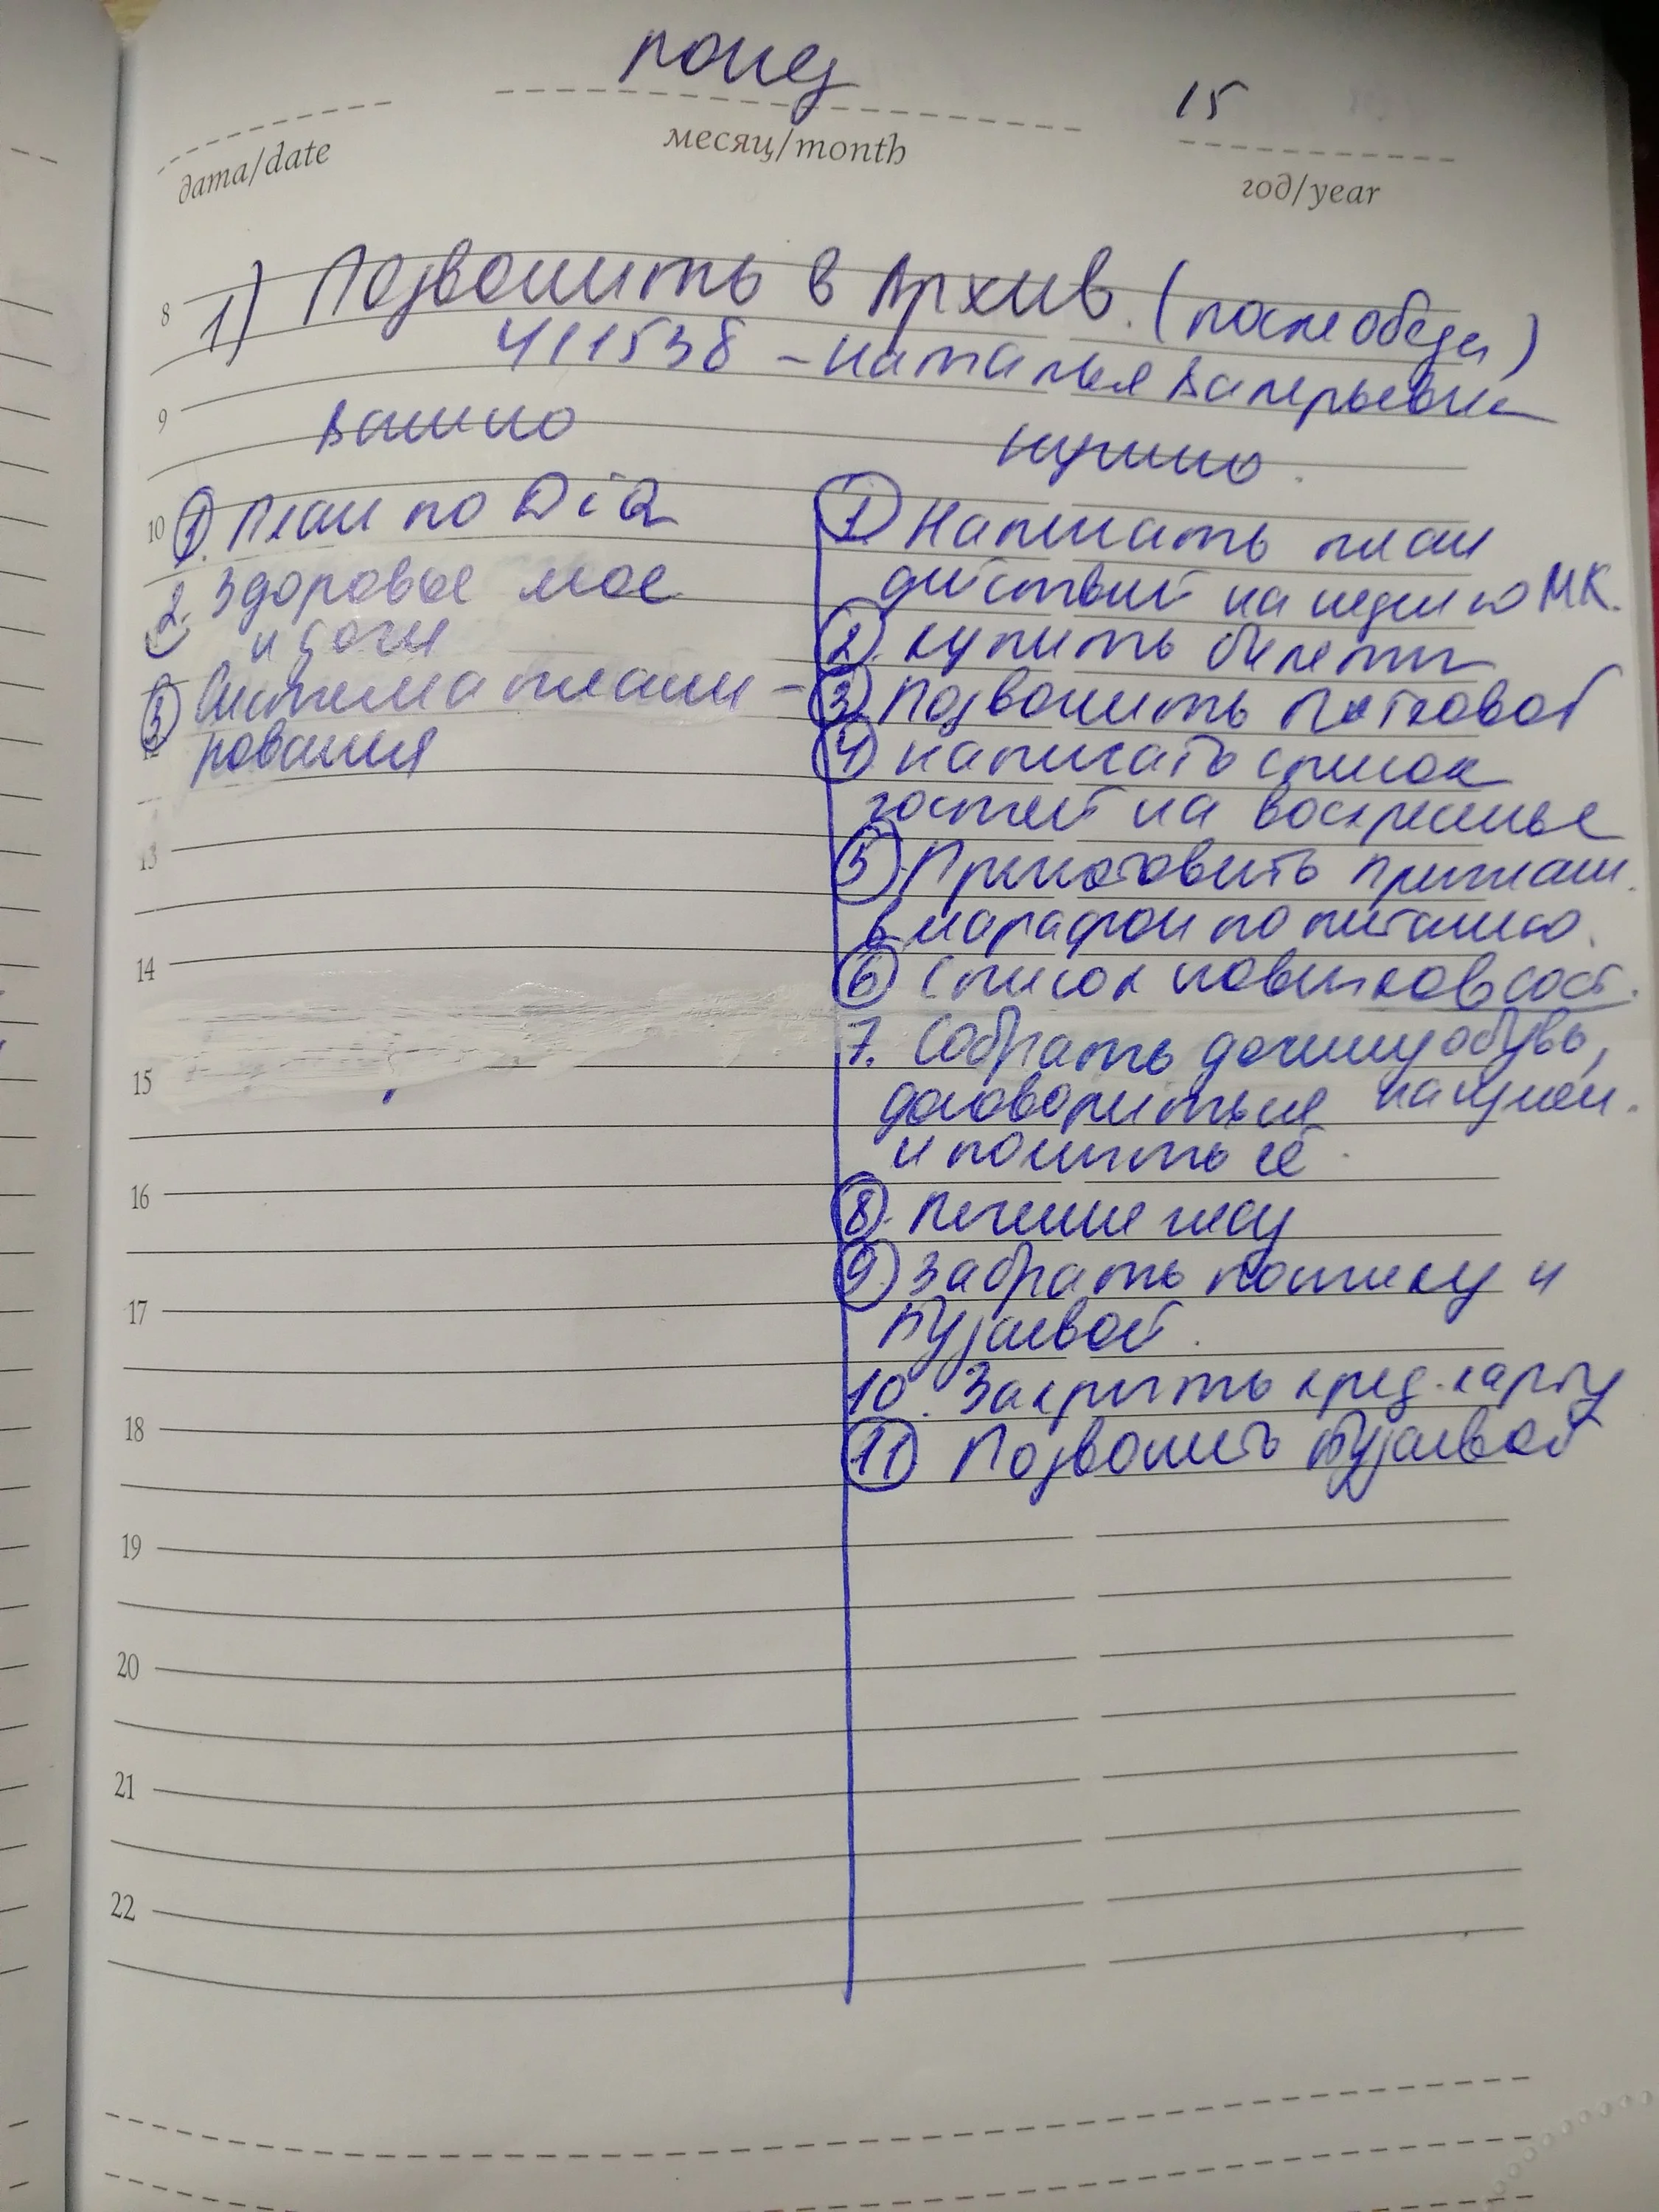 понед
15
дата/date
месяц/month
год/year
1) Позвонить в Архив. (после обеда)
411538 - Наталья Валерьевна
Важно
Нужно.
1. План по
2. Здоровье мое
и дочи
3 Система плани-
рования
1. Написать план
действий на неделю МК.
2. Купить билеты
3. Позвонить
4 Написать список
гостей на воскресенье
5. Приготовить приглаш.
в марафон по питанию.
6 Список новичков сост.
7. Собрать дочину обувь,
договориться
и помыть её.
8. Печенье
9. Забрать посылку у
Пузаевой.
10. Закрыть кред. карту
11 Позвонить Пузаевой
8
9
10
12
13
14
15
16
17
18
19
20
21
22